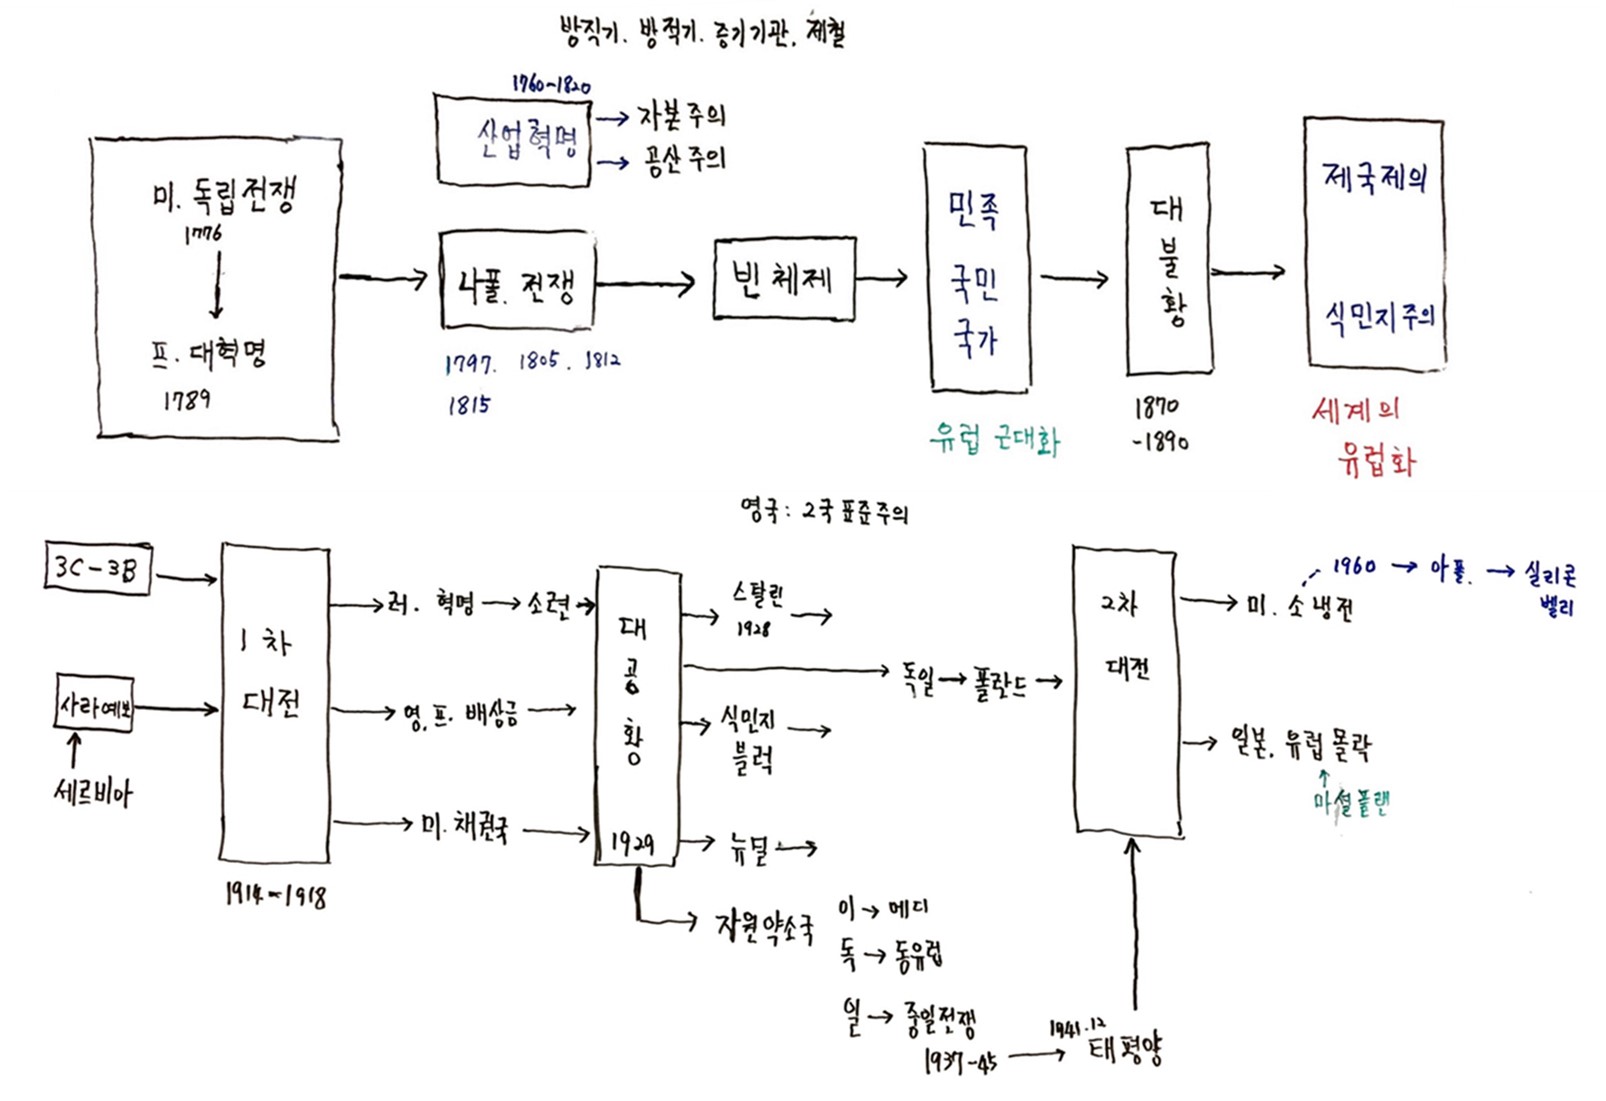 방직기. 방적기. 증기기관. 제철
1760-1820
산업혁명
→ 자본주의
→ 공산주의
미. 독립전쟁
1776
프. 대혁명
1789
나폴. 전쟁
1797. 1805. 1812
1815
빈 체제
민족
국민
국가
유럽 근대화
대
불
황
1870
-1890
제국제의
식민지주의
세계의
유럽화
영국: 2국표준주의
3C-3B
사라예보
세르비아
1차
대전
1914-1918
러. 혁명 → 소련 →
영. 프. 배상금 →
미. 채권국 →
대
공
황
1929
스탈린 →
1928
독일 → 폴란드 →
식민지 →
블럭
뉴딜 →
자원약소국
이 → 메디
독 → 동유럽
일 → 중일전쟁
1937-45 →
1941.12
태평양
2차
대전
1960 → 아폴. → 실리콘
벨리
미. 소 냉전
일본. 유럽 몰락
마셜플랜